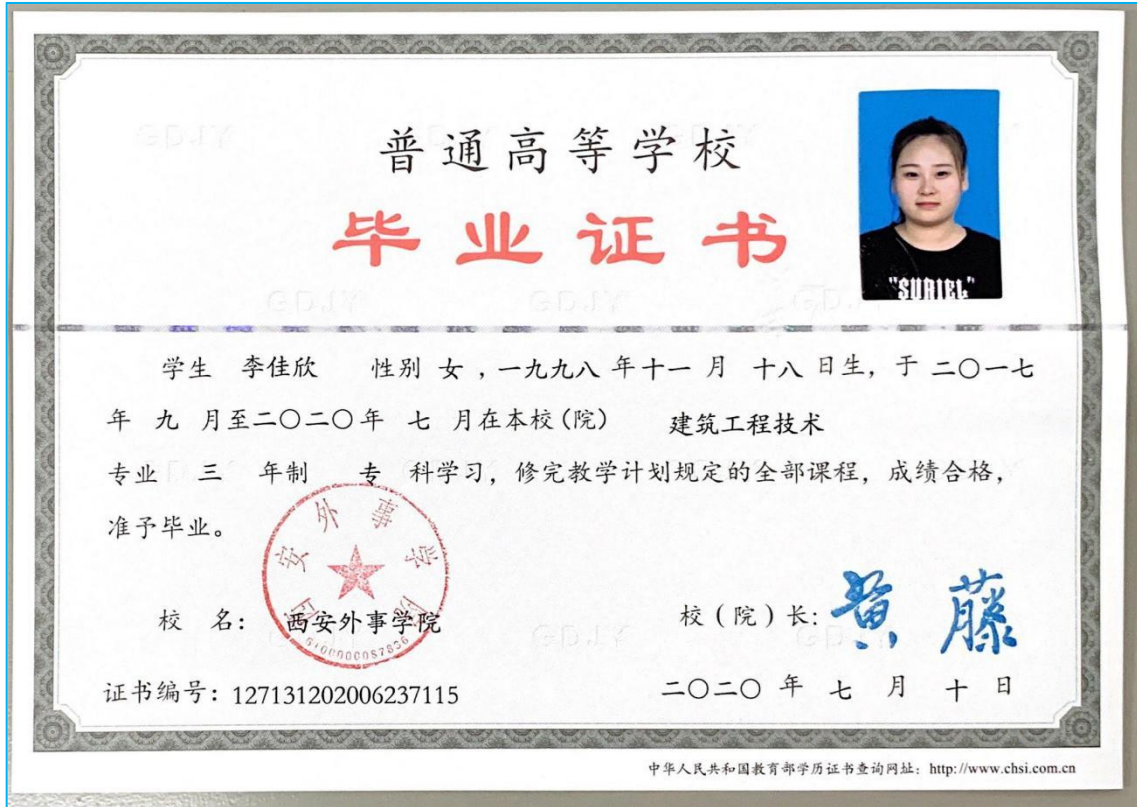 普通高等学校
毕业证书
"SURIEL"
学生 李佳欣 性别 女 ，一九九八 年十一 月 十八 日生，于 二〇一七
年 九 月至二〇二〇年 七 月在本校(院) 建筑工程技术
专业 三 年制 专 科学习，修完教学计划规定的全部课程，成绩合格，
准予毕业。
西安外事学院
校 名： 西安外事学院
校（院）长：黄藤
证书编号：127131202006237115
二〇二〇 年 七 月 十 日
中华人民共和国教育部学历证书查询网址：http://www.chsi.com.cn